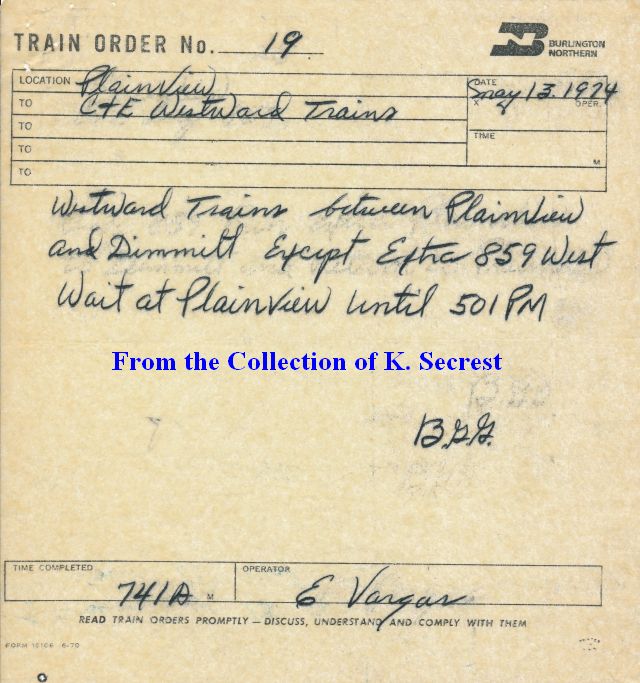 TRAIN ORDER No. 19
BURLINGTON
NORTHERN
LOCATION Plainview
DATE May 13, 1974
TO C+E Westward Trains
X OPER.
TO
TIME
TO
M
TO
Westward Trains between Plainview
and Dimmitt Except Extra 859 West
Wait at Plainview Until 501 PM
From the Collection of K. Secrest
B.G.G.
TIME COMPLETED
OPERATOR
741A M
E Vargas
READ TRAIN ORDERS PROMPTLY — DISCUSS, UNDERSTAND AND COMPLY WITH THEM
FORM 15106 6-70